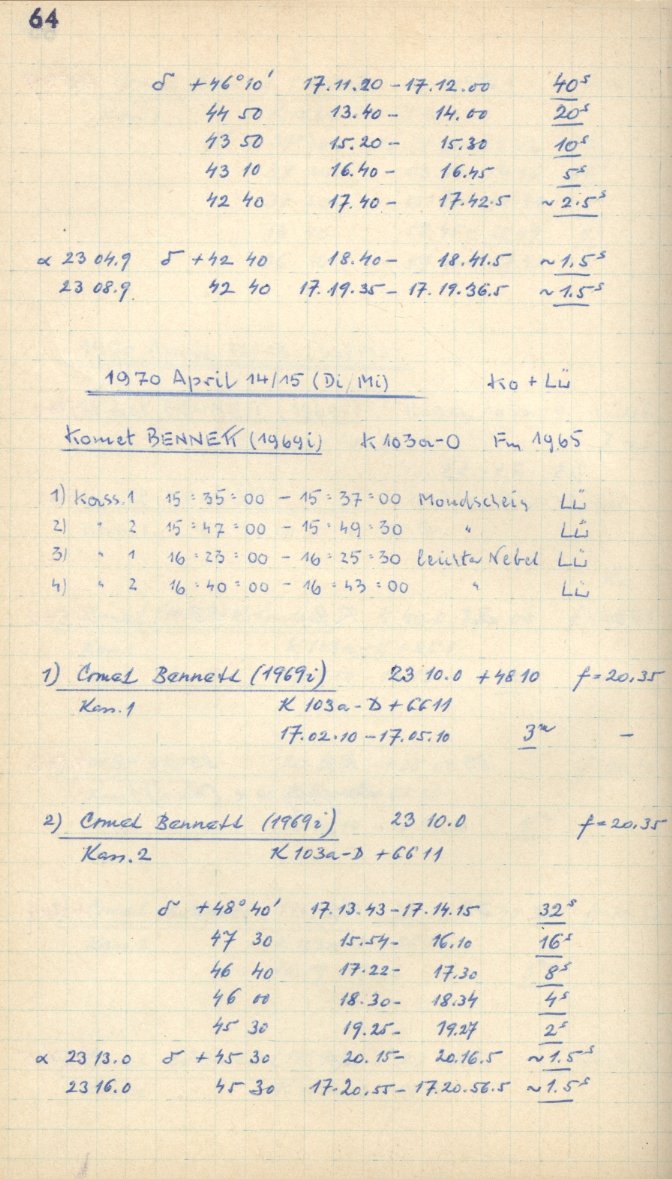 64
δ +46°10' 17.11.20 - 17.12.00 40ˢ
44 50 13.40 - 14.00 20ˢ
43 50 15.20 - 15.30 10ˢ
43 10 16.40 - 16.45 5ˢ
42 40 17.40 - 17.42.5 ~ 2.5ˢ
α 23 04.9 δ +42 40 18.40 - 18.41.5 ~ 1.5ˢ
23 08.9 42 40 17.19.35 - 17.19.36.5 ~ 1.5ˢ
1970 April 14/15 (Di/Mi) Ko + Lü
Komet BENNETT (1969i) K 103a-O Fm 1965
1) Kass. 1 15:35:00 - 15:37:00 Mondschein Lü
2) " 2 15:47:00 - 15:49:30 " Lü
3) " 1 16:23:00 - 16:25:30 leichter Nebel Lü
4) " 2 16:40:00 - 16:43:00 " Lü
1) Comet Bennett (1969i) 23 10.0 +48 10 f = 20,35
Kass. 1 K 103a-D + GG11
17.02.10 - 17.05.10 3ᵐ -
2) Comet Bennett (1969i) 23 10.0 f = 20,35
Kass. 2 K 103a-D + GG11
δ +48°40' 17.13.43 - 17.14.15 32ˢ
47 30 15.54 - 16.10 16ˢ
46 40 17.22 - 17.30 8ˢ
46 00 18.30 - 18.34 4ˢ
45 30 19.25 - 19.27 2ˢ
α 23 13.0 δ +45 30 20.15 - 20.16.5 ~ 1.5ˢ
23 16.0 45 30 17.20.55 - 17.20.56.5 ~ 1.5ˢ